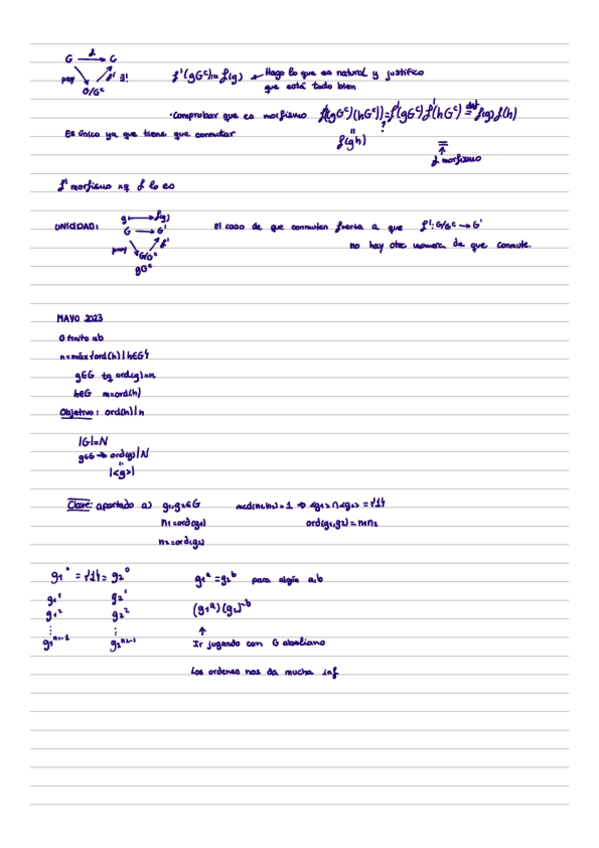 G f→ G
proy f' ∃!
G/Gᶜ
f'(gGᶜ):= f(g) ← Hago lo que es natural y justifico
que está todo bien
· Comprobar que es morfismo f'((gGᶜ)(hGᶜ)) = f'(gGᶜ) f'(hGᶜ) def= f(g) f(h)
?
Es único ya que tiene que conmutar
f(gh)
=
↑
f morfismo
f' morfismo xq f lo es
UNICIDAD:
g ↦ f(g)
G → G'
proy f'
G/Gᶜ
gGᶜ
El caso de que conmuten fuerza a que f': G/Gᶜ → G'
no hay otra manera de que conmute.
MAYO 2023
G finito ab
n=máx{ord(h) | h∈G}
g∈G tq ord(g)=n
h∈G m=ord(h)
Objetivo: ord(h)|n
|G|=N
g∈G → ord(g)|N
"
|<g>|
Clave: apartado a) g₁,g₂∈G mcd(n₁,n₂)=1 ⇒ <g₁>∩<g₂> = {1}
n₁=ord(g₁) ord(g₁,g₂) = n₁n₂
n₂=ord(g₂)
g₁⁰ = {1} = g₂⁰ g₁ᵃ = g₂ᵇ para algún a,b
g₁¹ g₂¹
g₁² g₂² (g₁ᵃ)(g₂)⁻ᵇ
⋮ ⋮ ↑
g₁ⁿ¹⁻¹ g₂ⁿ²⁻¹ Ir jugando con G abeliano
Los ordenes nos da mucha inf